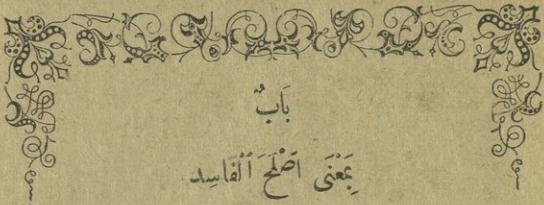 بَابٌ
بِمَعْنَى اَصْلَحَ ٱلْفَاسِد